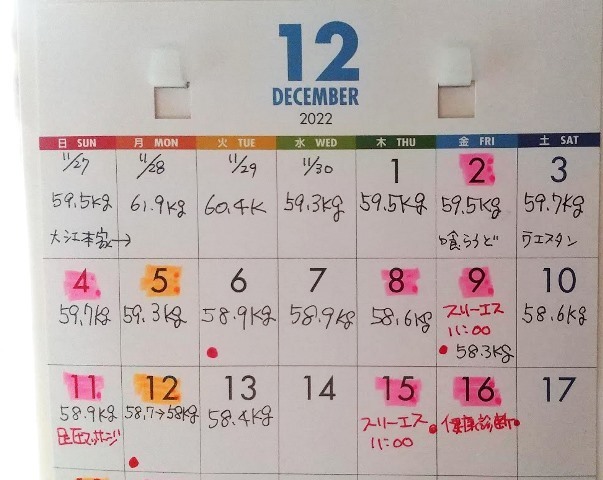 12
DECEMBER
2022
日 SUN 月 MON 火 TUE 水 WED 木 THU 金 FRI 土 SAT
11/27 11/28 11/29 11/30 1 2 3
59.5kg 61.9kg 60.4K 59.3kg 59.5kg 59.5kg 59.7kg
大江本家→ 喰うらど ウエスタン
4 5 6 7 8 9 10
59.7kg 59.3kg 58.9kg 58.9kg 58.6kg スリーエス 58.6kg
11:00
58.3kg
11 12 13 14 15 16 17
58.9kg 58.7→58kg 58.4kg スリーエス 健康診断
11:00